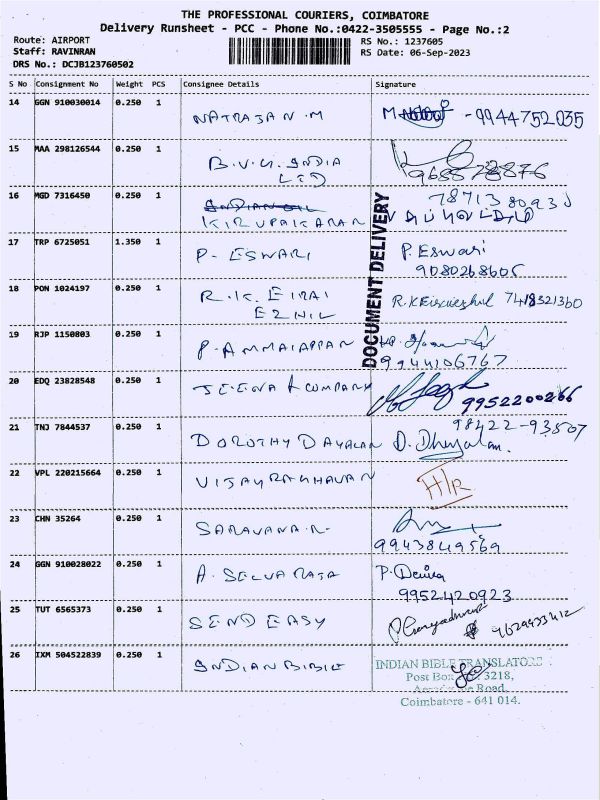 THE PROFESSIONAL COURIERS, COIMBATORE
Delivery Runsheet - PCC - Phone No.:0422-3505555 - Page No.:2
Route: AIRPORT
Staff: RAVINRAN
DRS No.: DCJB123760502
RS No.: 1237605
RS Date: 06-Sep-2023
S No Consignment No Weight PCS Consignee Details Signature
14 GGN 910030014 0.250 1 NATRAJAN.M M. - 9944752035
15 MAA 298126544 0.250 1 B.V.G. INDIA
LTD
16 MGD 7316450 0.250 1 KIRUPAKARAN
DOCUMENT DELIVERY
17 TRP 6725051 1.350 1 P. ESWARI P. Eswari
9080268605
18 PON 1024197 0.250 1 R.K. EIRAI
EZHIL R.K 7418321360
19 RJP 1150803 0.250 1 P. AMMAIAPPAN
9944106767
20 EDQ 23828548 0.250 1 JEENA & COMPANY 9952200266
21 TNJ 7844537 0.250 1 DOROTHY DAYALAN D. Dhayalan.
98422-93507
22 VPL 220215664 0.250 1 VIJAYRAGHAVAN H/R
23 CHN 35264 0.250 1 SARAVANA.R
9943849569
24 GGN 910028022 0.250 1 A. SELVARAJA P.
9952420923
25 TUT 6565373 0.250 1 SEND EASY 9629933412
26 IXM 504522839 0.250 1 INDIAN BIBLE
INDIAN BIBLE TRANSLATORS
Post Box 3218,
Road,
Coimbatore - 641 014.